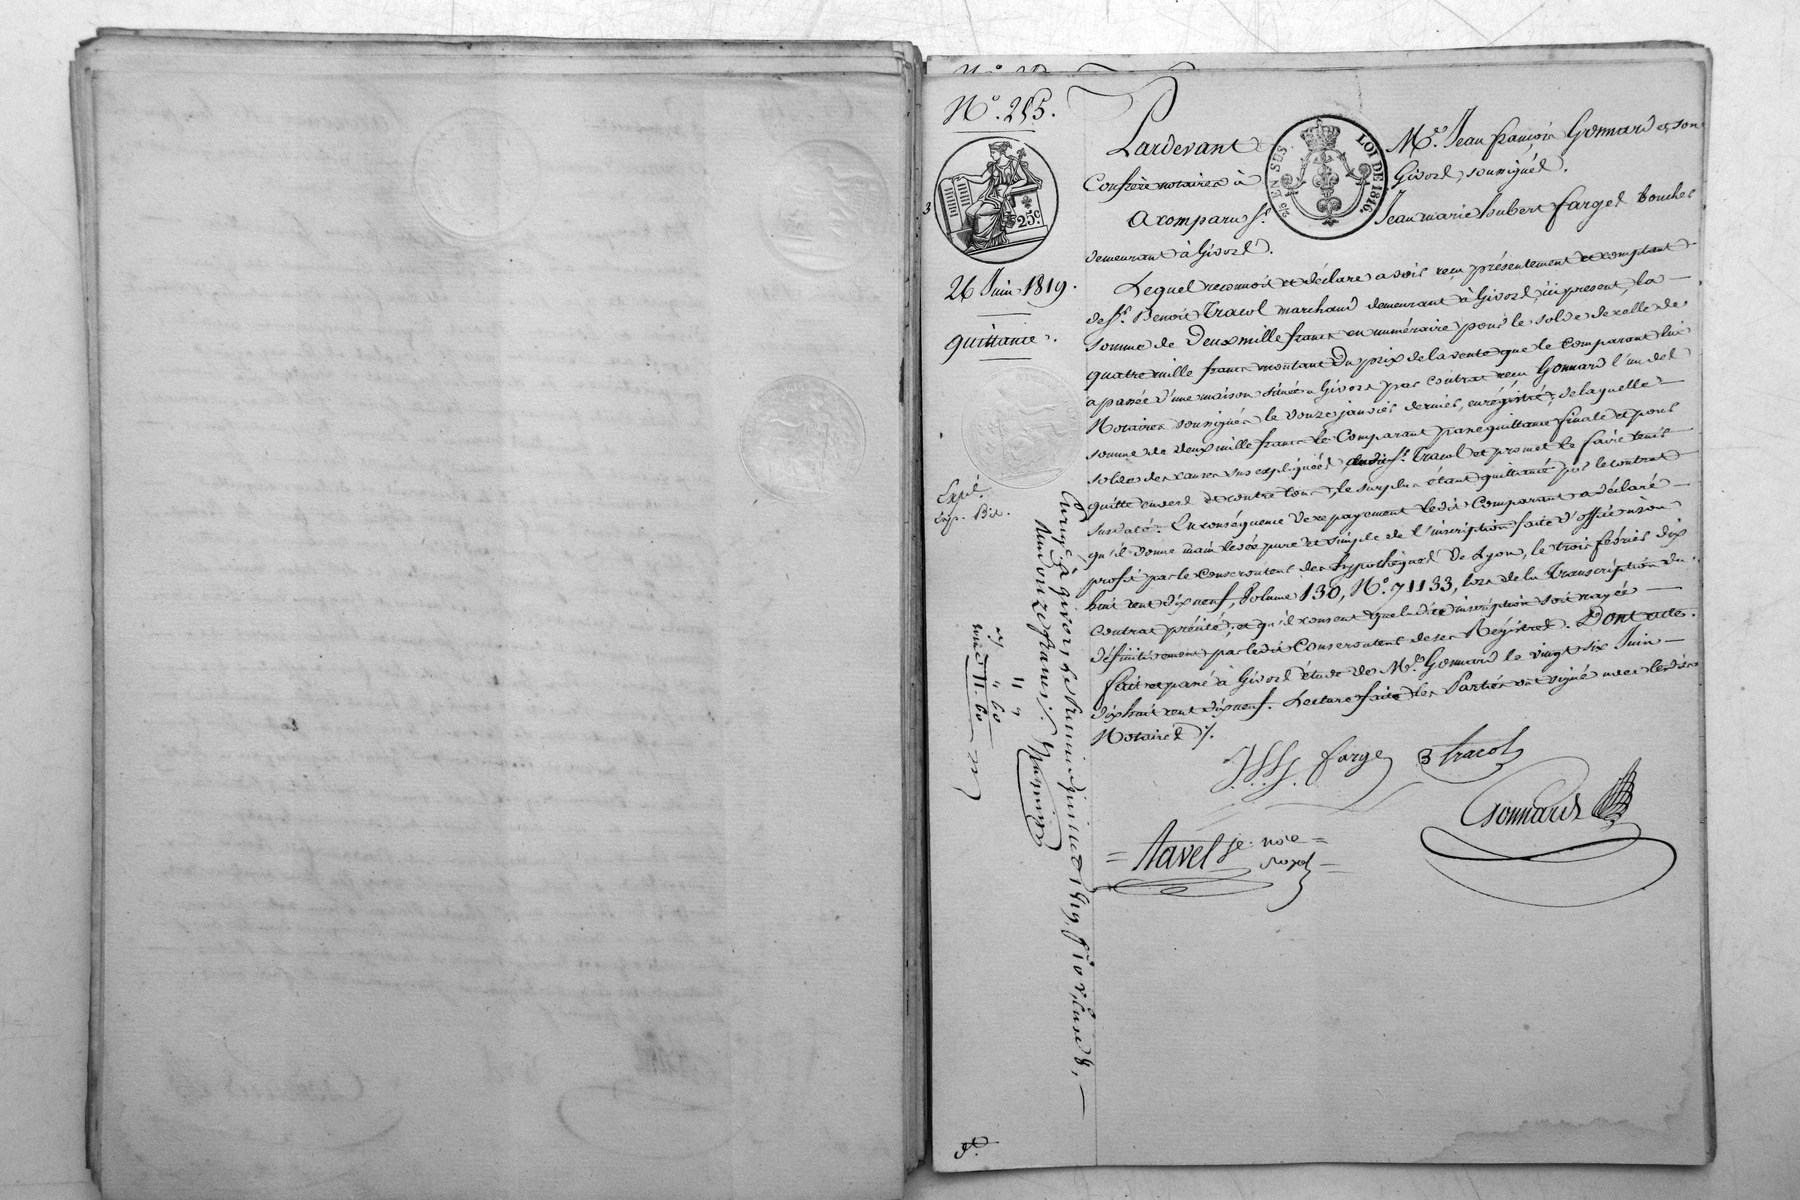 N.° 215.
25.c
26 Juin 1819.
quittance.
Expé.
Pardevant M.e Jean françois Gonnard et son
EN SUS LOI DE 1816.
Confrère notaires à Givors, soussignés.
A comparu S.r Jean marie hubert farges boucher
demeurant à Givors.
Lequel reconnoit et déclare avoir reçu présentement et comptant
de S.r Benoit Tracol marchand demeurant à Givors, ici présent, la
somme de Deux mille francs en numéraire pour le solde de celle de
quatre mille francs montant du prix de la vente que le Comparant lui
a passée d'une maison située à Givors par contrat reçu Gonnard l'un des
Notaires soussignés le douze janvier dernier, enrégistré; de laquelle
somme de deux mille francs le Comparant passe quittance finale et pour
solde des causes sus expliquées audit S.r Tracol et promet le faire tenir
quitte envers et contre tous, le surplus étant quittancé par le contrat
susdaté. En conséquence de ce payement ledit Comparant a déclaré
qu'il donne main levée pure et simple de l'inscription faite d'office à son
profit par le Conservateur des hypothèques de Lyon, le trois février dix
huit cent dix neuf, Volume 130, N.° 71133, lors de la Transcription du
contrat précité, et qu'il consent que ladite inscription soit rayée
définitivement par ledit Conservateur de ses Régistres. Dont acte.
fait et passé à Givors étude de M.e Gonnard le vingt six Juin
dix huit cent dix neuf. Lecture faite les Parties ont signé avec lesdits
Notaires ./.
farges B tracol
Gonnard
Navel j.e no.re
royal
Enreg.é à givors le premier juillet 1819, f.° 102, Case 8,
Reçu onze francs
11 "
" 60
11. 60